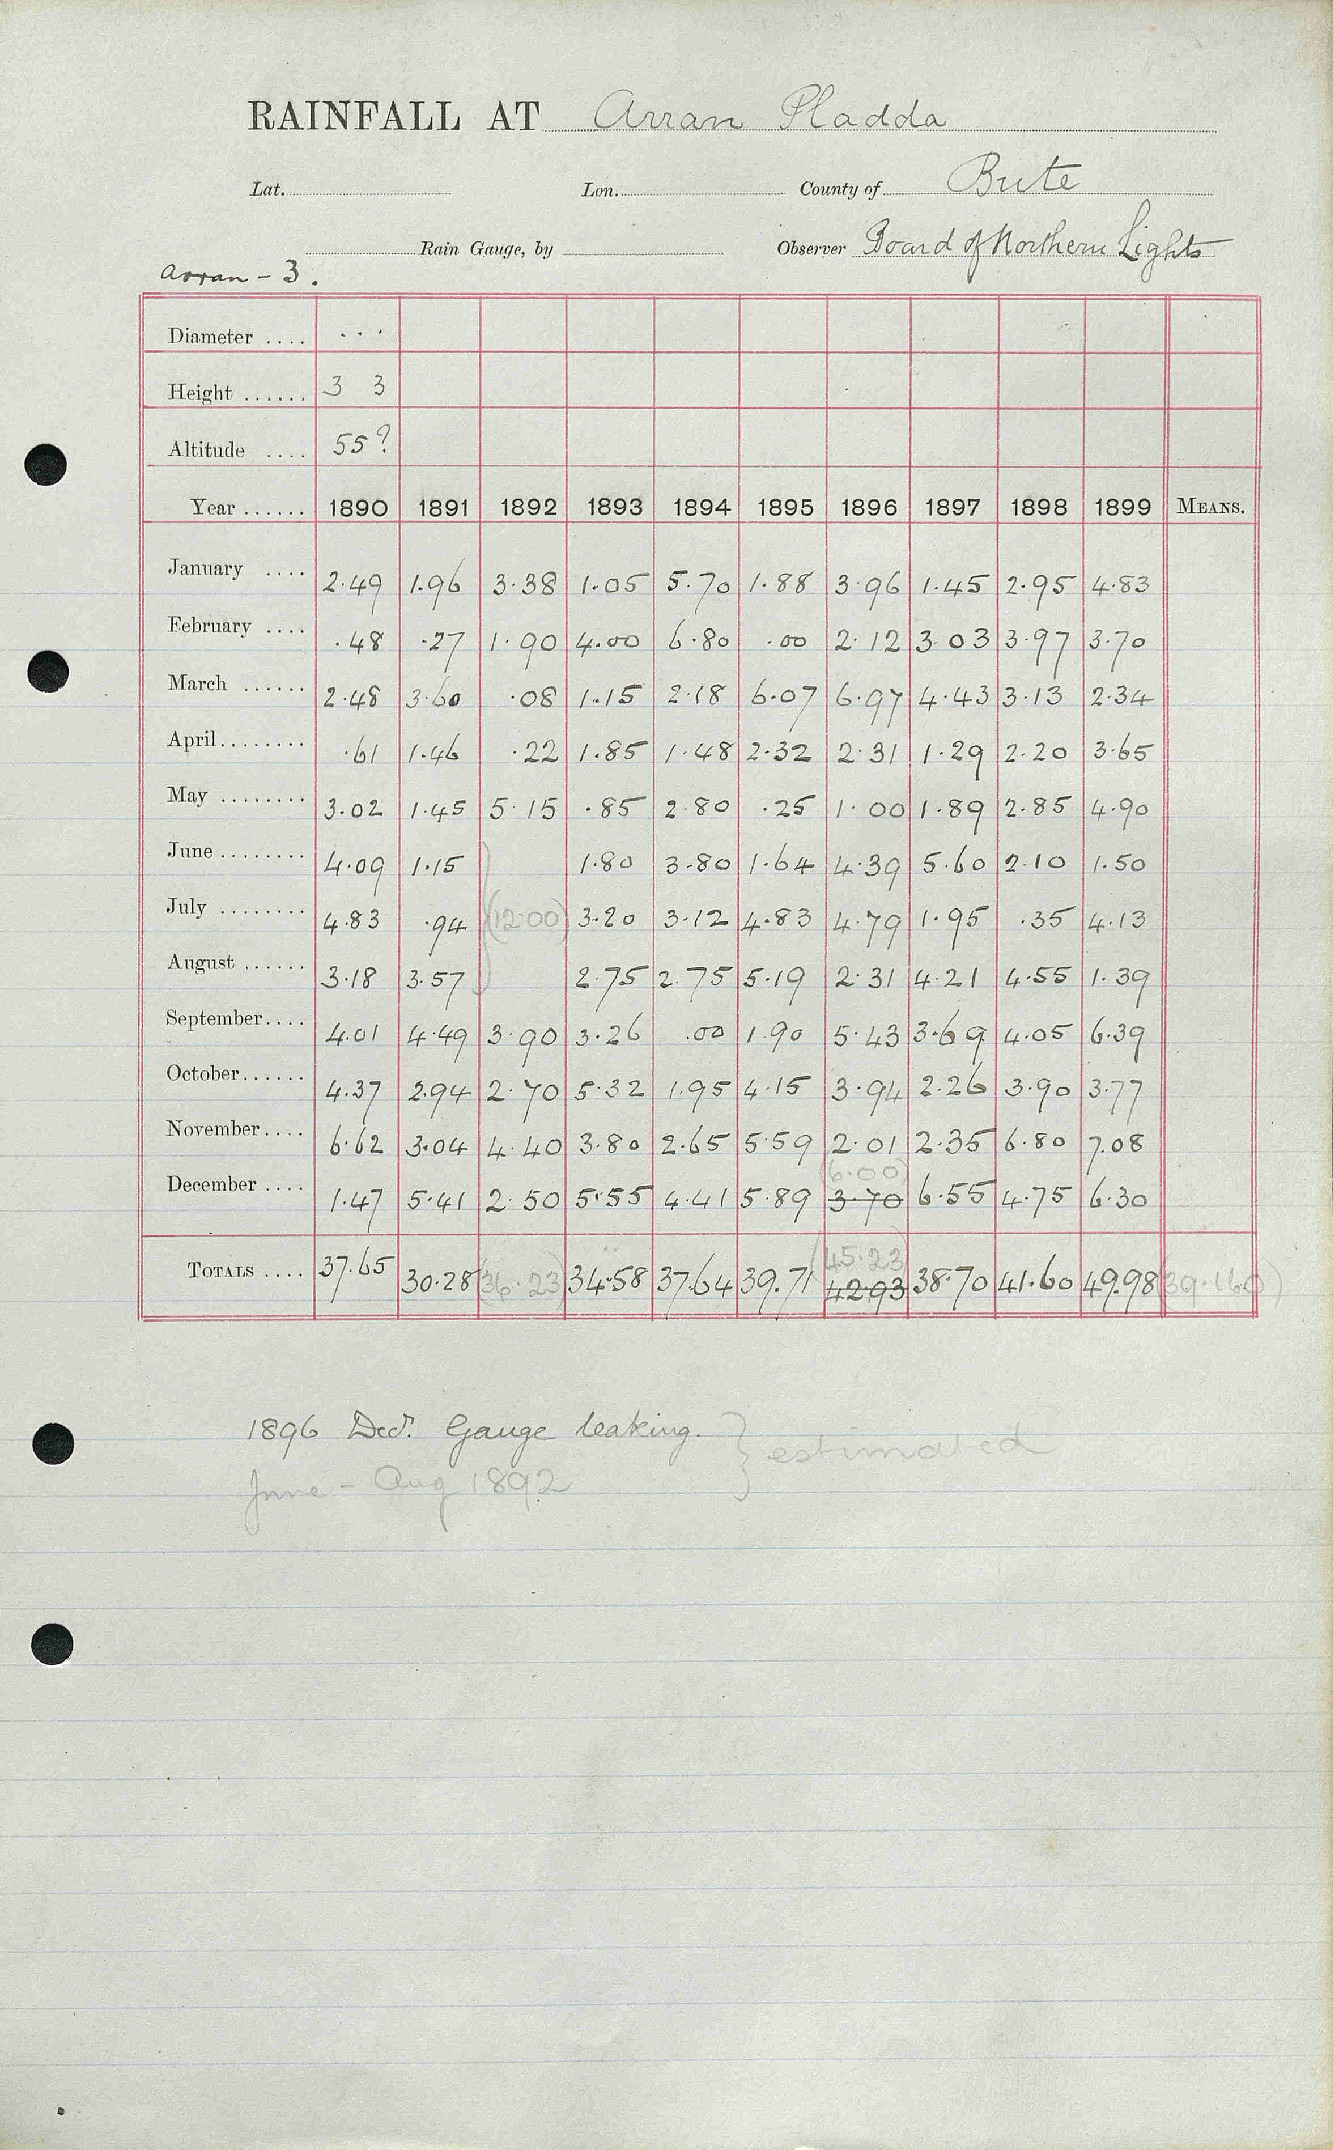 RAINFALL AT Arran Pladda
Lat. Lon. County of Bute
Rain Gauge, by Observer Board of Northern Lights
Arran - 3.
Diameter .... ...
Height ...... 3 3
Altitude .... 55?
Year ...... 1890 1891 1892 1893 1894 1895 1896 1897 1898 1899 MEANS.
January .... 2.49 1.96 3.38 1.05 5.70 1.88 3.96 1.45 2.95 4.83
February .... .48 .27 1.90 4.00 6.80 .00 2.12 3.03 3.97 3.70
March ...... 2.48 3.60 .08 1.15 2.18 6.07 6.97 4.43 3.13 2.34
April ........ .61 1.46 .22 1.85 1.48 2.32 2.31 1.29 2.20 3.65
May ........ 3.02 1.45 5.15 .85 2.80 .25 1.00 1.89 2.85 4.90
June ........ 4.09 1.15 1.80 3.80 1.64 4.39 5.60 2.10 1.50
July ........ 4.83 .94 (12.00) 3.20 3.12 4.83 4.79 1.95 .35 4.13
August ...... 3.18 3.57 2.75 2.75 5.19 2.31 4.21 4.55 1.39
September.... 4.01 4.49 3.90 3.26 .00 1.90 5.43 3.69 4.05 6.39
October...... 4.37 2.94 2.70 5.32 1.95 4.15 3.94 2.26 3.90 3.77
November.... 6.62 3.04 4.40 3.80 2.65 5.59 2.01 2.35 6.80 7.08
(6.00)
December .... 1.47 5.41 2.50 5.55 4.41 5.89 3.70 6.55 4.75 6.30
45.23
TOTALS .... 37.65 30.28 (36.23) 34.58 37.64 39.71 42.93 38.70 41.60 49.98 (39.160)
1896 Decr. Gauge leaking. } estimated
June - Aug 1892